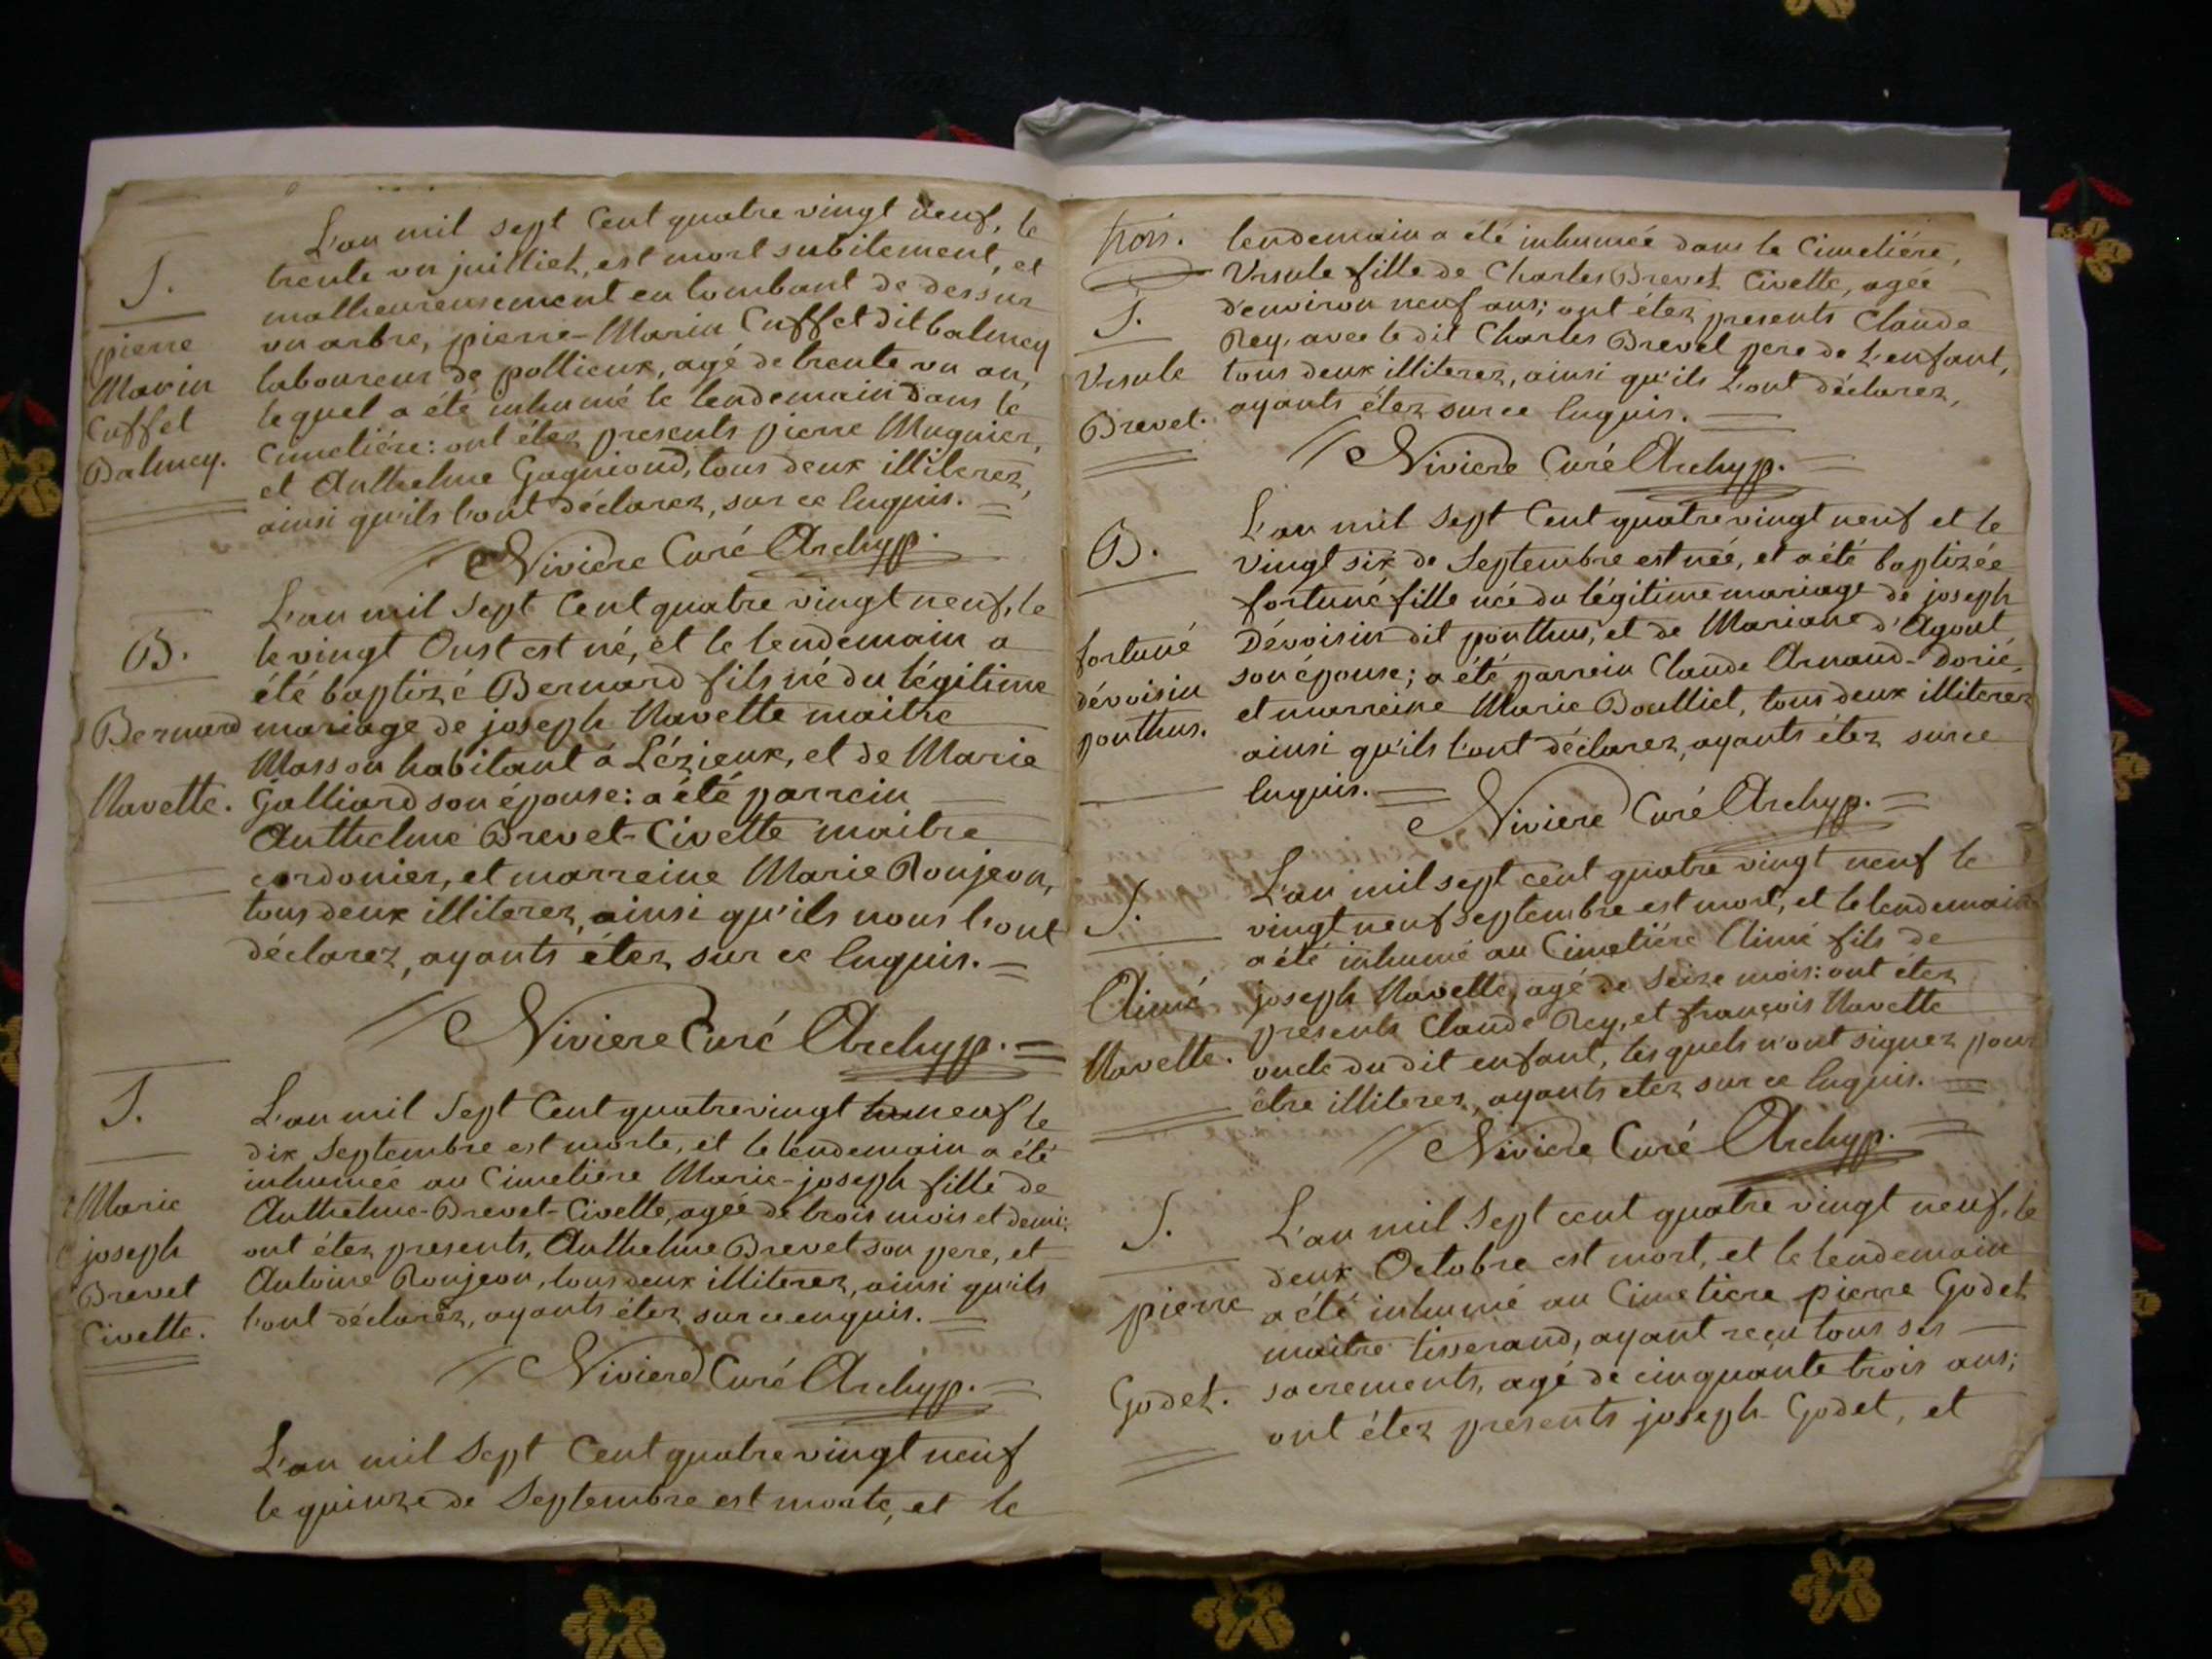 L'an mil sept Cent quatre vingt neuf, le
trente un juilliet, est mort subitement, et
malheureusement en tombant de dessur
S.
un arbre, pierre-Marin Cuffet dit balmey
pierre
laboureur de pollieux, agé de trente un an,
Marin
lequel a été inhumé le lendemain dans le
Cuffet
Cimetiére: ont étez presents pierre Mugnier,
Balmey.
et Anthelme Gagnioud, tous deux illiterez,
ainsi qu'ils l'ont déclarez, sur ce Enquis.
Niviere Curé Archyp.
L'an mil Sept Cent quatre vingt neuf, le
B.
le vingt Oust est né, et le lendemain a
été baptizé Bernard fils né du légitime
Bernard
mariage de joseph Navette maitre
Masson habitant à Lézieux, et de Marie
Navette.
Galliard son épouse: a été parrein
Anthelme Brevet-Civette maitre
cordonier, et marreine Marie Roujeon,
tous deux illiterez, ainsi qu'ils nous l'ont
déclarez, ayants étez sur ce Enquis.
Niviere Curé Archyp.
S.
L'an mil Sept Cent quatre vingt neuf le
dix Septembre est morte, et le lendemain a été
inhumée au Cimetiére Marie-joseph fille de
Marie
Anthelme-Brevet-Civette, agée de trois mois et demi:
joseph
ont étez presents, Anthelme Brevet son pere, et
Brevet
Antoine Roujeon, tous deux illiterez, ainsi qu'ils
Civette.
l'ont déclarez, ayants étez sur ce enquis.
Niviere Curé Archyp.
L'an mil Sept Cent quatre vingt neuf
le quinze de Septembre est morte, et le
trois.
lendemain a été inhumée dans le Cimetiére,
Ursule fille de Charles Brevet Civette, agée
S.
d'environ neuf ans; ont étez presents Claude
Rey, avec le dit Charles Brevet pere de L'enfant,
Ursule
tous deux illiterez, ainsi qu'ils L'ont déclarez,
Brevet.
ayants étez sur ce Enquis.
Niviere Curé Archyp.
L'an mil Sept Cent quatre vingt neuf et le
B.
vingt six de Septembre est née, et a été baptizée
fortuné fille née du légitime mariage de joseph
fortuné
Dévoisin dit ponthus, et de Mariane d'Agout
dévoisin
son épouse; a été parrein Claude Arnaud-Dorié,
ponthus.
et marreine Marie Boulliet, tous deux illiterez
ainsi qu'ils l'ont déclarez, ayants étez sur ce
Enquis.
Niviere Curé Archyp.
L'an mil sept cent quatre vingt neuf le
S.
vingt neuf septembre est mort, et le lendemain
a été inhumé au Cimetiére Aimé fils de
Aimé
joseph Navette, agé de Seize mois: ont étez
presents Claude Rey, et françois Navette
Navette.
oncle du dit enfant, lesquels n'ont signez pour
être illiterez, ayants etez sur ce Enquis.
Niviere Curé Archyp.
S.
L'an mil Sept cent quatre vingt neuf, le
deux Octobre est mort, et le lendemain
pierre
a été inhumé au Cimetiere pierre Godet
maitre tisserand, ayant reçu tous ses
Godet.
sacrements, agé de cinquante trois ans;
ont étez presents joseph Godet, et